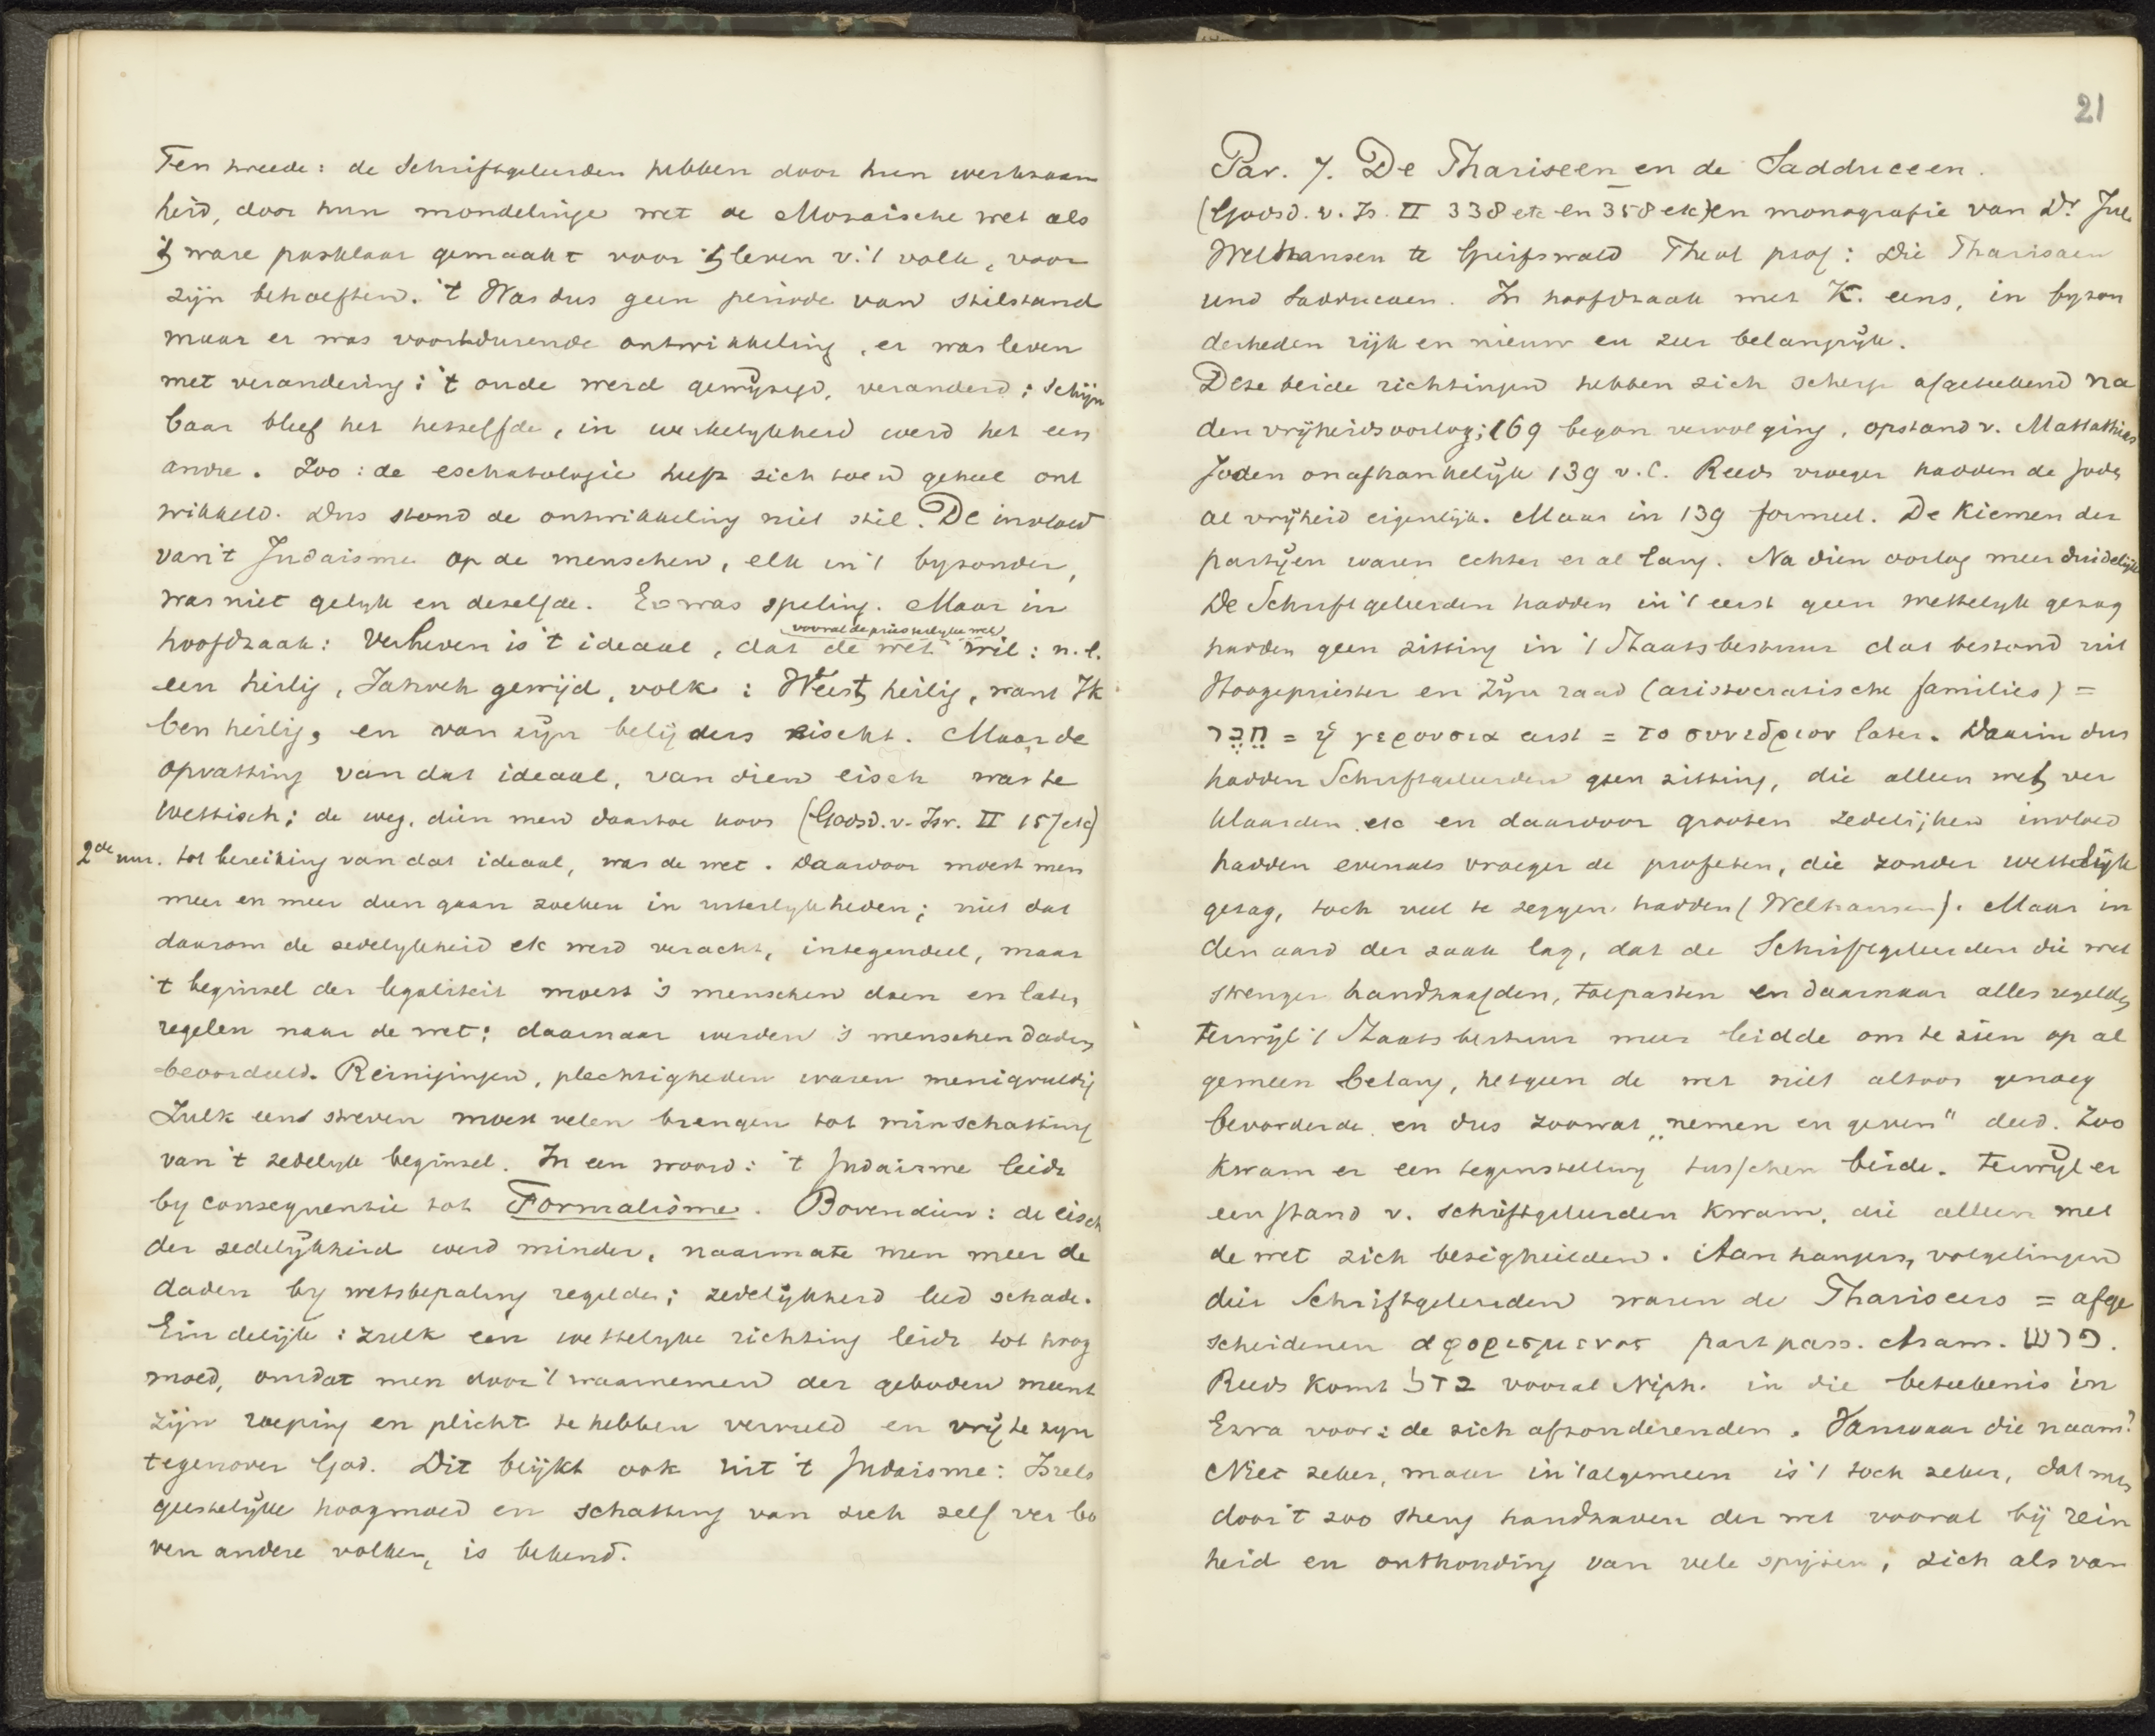 Ten tweede: de Schriftgeleerden hebben door hun werkzaam
heid, door hun mondelinge wet de Mozaische wet als
't ware pasklaar gemaakt voor 't leven v. 't volk, voor
zijn behoeften. 't Was dus geen periode van stilstand
maar er was voortdurende ontwikkeling, er was leven
met verandering: 't oude werd gewijzigd, veranderd; schijn
baar bleef het hetzelfde, in werkelykheid werd het een
andre. Zoo: de eschatologie heeft zich toen geheel ont
wikkeld. Dus stond de ontwikkeling niet stil. De invloed
van 't Judaisme op de menschen, elk in 't byzonder,
was niet gelyk en dezelfde. Er was speling. Maar in
vooral de priesterlyke wet
hoofdzaak: Verheven is 't ideaal, dat de wet wil: n.l.
een heilig, Jahveh gewijd, volk: Weest heilig, want Ik
ben heilig, en van zijn belijders eischt. Maar de
opvatting van dat ideaal, van dien eisch was te
wettisch; de weg, dien men daartoe koos (Godsd. v. Isr. II 157 etc)
2de uur. tot bereiking van dat ideaal, was de wet. Daardoor moest men
meer en meer dien gaan zoeken in uiterlykheden; niet dat
daarom de zedelykheid etc werd veracht, integendeel, maar
't beginsel der legaliteit moest 's menschen doen en laten
regelen naar de wet: daarnaar werden 's menschen daden
beoordeeld. Reinigingen, plechtigheden waren menigvuldig
Zulk eene streven moest velen brengen tot minschatting
van 't zedelyk beginsel. In een woord: 't Judaisme leidt
by consequentie tot Formalisme. Bovendien: de eisch
der zedelijkheid werd minder, naarmate men meer de
daden by wetsbepaling regelde; zedelijkheid leed schade.
Eindelijk: zulk een wettelyke richting leidt tot hoog
moed, omdat men door 't waarnemen der geboden meent
zijn roeping en plicht te hebben vervuld en vrij te zyn
tegenover God. Dit blijkt ook uit 't Judaisme: Isrels
geestelijke hoogmoed en schatting van zich zelf ver bo
ven andere volken, is bekend.
21
Par. 7. De Phariseen en de Sadduceen.
(Godsd. v. Is. II 338 etc en 358 etc) en monografie van Dr. Jul.
Welhausen te Greifswald Theol prof: Die Pharisaen
und Sadducaen. In hoofdzaak met K. eens, in byzon
derheden rijk en nieuw en zeer belangrijk.
Deze beide richtingen hebben zich scherp afgetekend na
den vrijheidsoorlog; 169 begon vervolging, opstand v. Mattathias
Joden onafhankelijk 139 v. C. Reeds vroeger hadden de Joden
al vrijheid eigenlijk. Maar in 139 formeel. De Kiemen der
partijen waren echter er al lang. Na dien oorlog meer duidelijk
De Schriftgeleerden hadden in 't eerst geen wettelyk gezag
hadden geen zitting in 't Staatsbestuur dat bestond uit
Hoogepriester en Zijn raad (aristocratische families) =
חֶבֶר = ἡ γερουσια eerst = το συνεδριον later. Daarin dus
hadden Schriftgeleerden geen zitting, die alleen wet ver
klaarden etc en daardoor grooten zedelijken invloed
hadden evenals vroeger de profeten, die zonder wettelijk
gezag, toch veel te zeggen hadden (Welhausen). Maar in
den aard der zaak lag, dat de Schriftgeleerden die wet
strenger handhaafden, toepasten en daarnaar alles regelden
terwijl 't Staatsbestuur meer leidde om te zien op al
gemeen belang, hetgeen de wet niet altoos genoeg
bevorderde en dus zoowat „nemen en geven" deed. Zoo
kwam er een tegenstelling tusschen beide. Terwijl er
een stand v. schriftgeleerden kwam, die alleen met
de wet zich bezighielden. Aanhangers, volgelingen
dier Schriftgeleerden waren de Phariseers = afge
scheidenen αφορισμενοι part pass. Aram. פרש.
Reeds komt בדל vooral Niph. in die beteekenis in
Ezra voor: de zich afzonderenden. Vanwaar die naam?
Niet zeker, maar in 't algemeen is 't toch zeker, dat men
door 't zoo streng handhaven der wet vooral bij rein
heid en onthouding van vele spijzen, zich als van